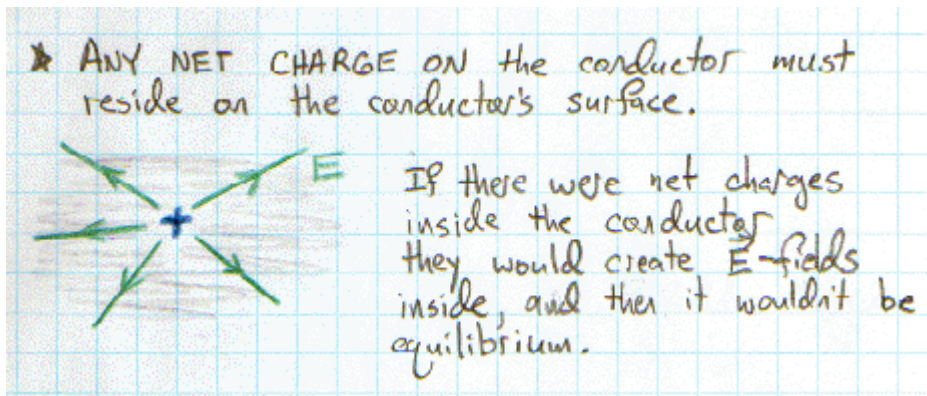 * ANY NET CHARGE ON the conductor must
reside on the conductor's surface.
+
E
If there were net charges
inside the conductor
they would create E-fields
inside, and then it wouldn't be
equilibrium.